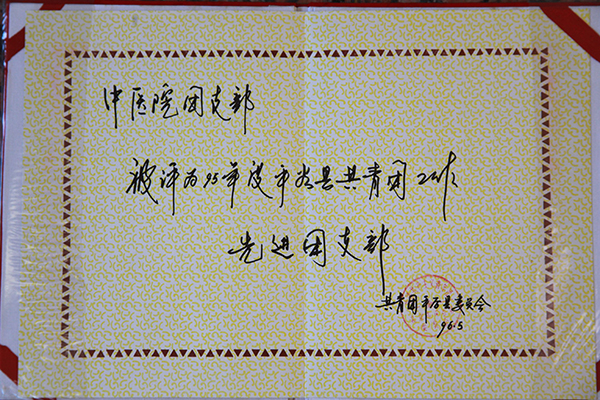 中医院团支部
被评为95年度平谷县共青团工作
先进团支部
共青团平谷县委员会
96.5